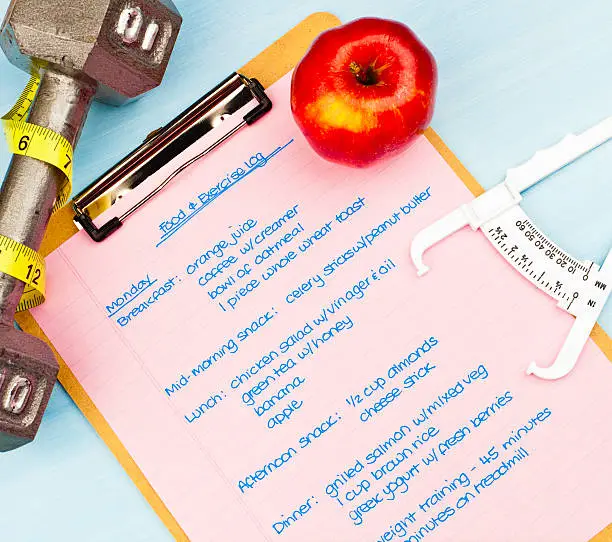 Food & Exercise Log
Monday
Breakfast: orange juice
coffee w/creamer
bowl of oatmeal
1 piece whole wheat toast
Mid-morning snack: celery sticks w/peanut butter
Lunch: chicken salad w/vinager & oil
green tea w/honey
banana
apple
Afternoon snack: 1/2 cup almonds
cheese stick
Dinner: grilled salmon w/mixed veg
1 cup brown rice
greek yogurt w/fresh berries
weight training - 45 minutes
minutes on treadmill
10
10
6
7
12
0 10 20 30 40 50 60
MM